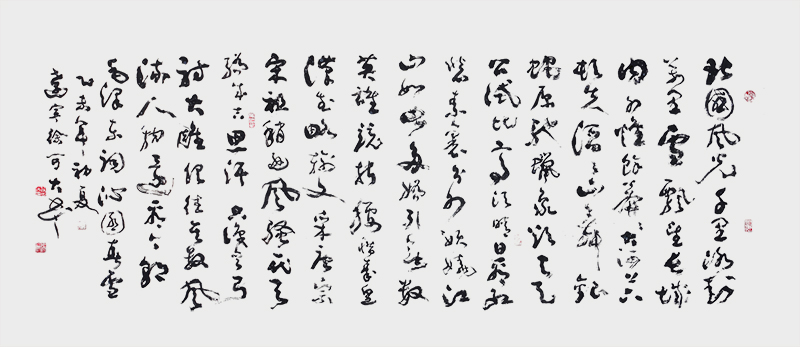 北國風光千里冰封
萬里雪飄望長城
内外惟餘莽莽大河上下
頓失滔滔山舞銀
蛇原馳蠟象欲與天
公試比高須晴日看紅
裝素裹分外妖嬈江
山如此多嬌引無數
英雄競折腰惜秦皇
漢武略輸文采唐宗
宋祖稍遜風騷一代天
驕成吉思汗只識彎弓
射大雕俱往矣數風
流人物還看今朝
毛澤東詞沁園春雪
乙未年初夏
徐可大書